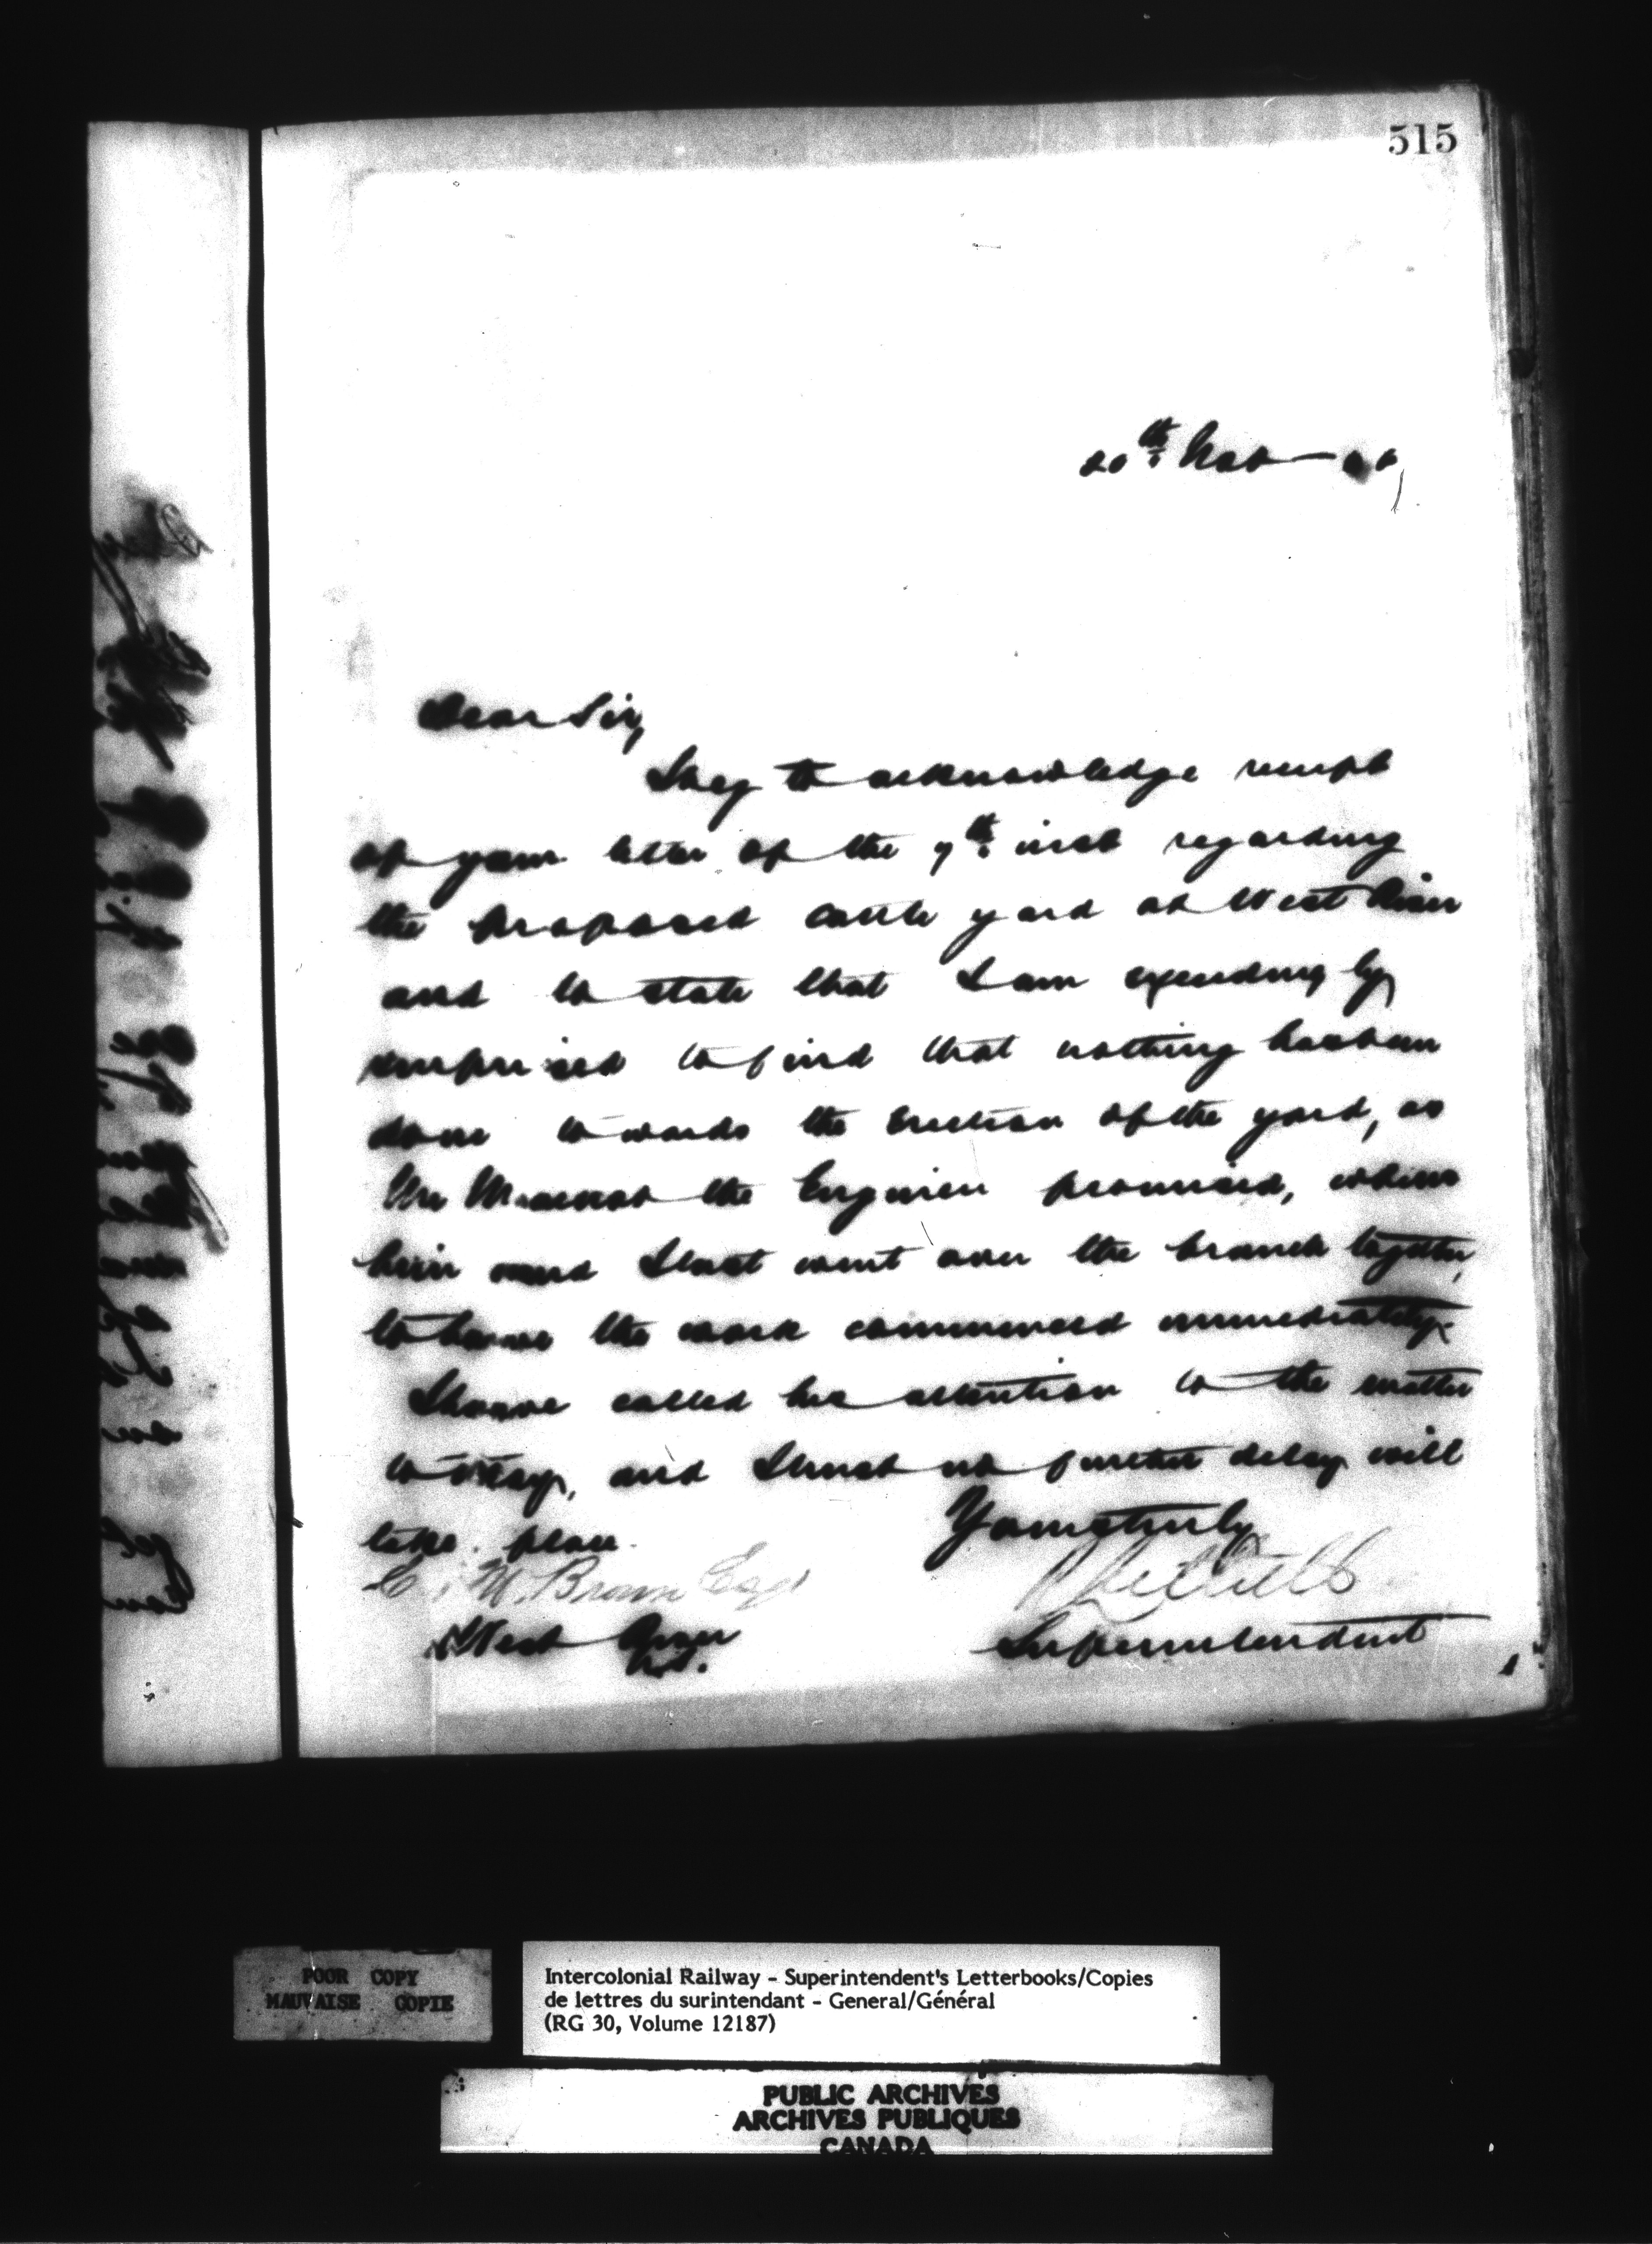 515
20th Nov
Dear Sir,
I beg to acknowledge receipt
of your letter of the 9th inst regarding
the proposed cattle yard at West River
and to state that I am exceedingly
surprised to find that nothing has been
done towards the erection of the yard, as
Mr the Engineer promised, when
him and I last went over the branch together,
to have the work commenced immediately.
I have called his attention to the matter
to day, and I trust no further delay will
take place.
Yours truly
W. Brown Esq
West River
Superintendent
POOR COPY
MAUVAISE COPIE
Intercolonial Railway - Superintendent's Letterbooks/Copies
de lettres du surintendant - General/Général
(RG 30, Volume 12187)
PUBLIC ARCHIVES
ARCHIVES PUBLIQUES
CANADA